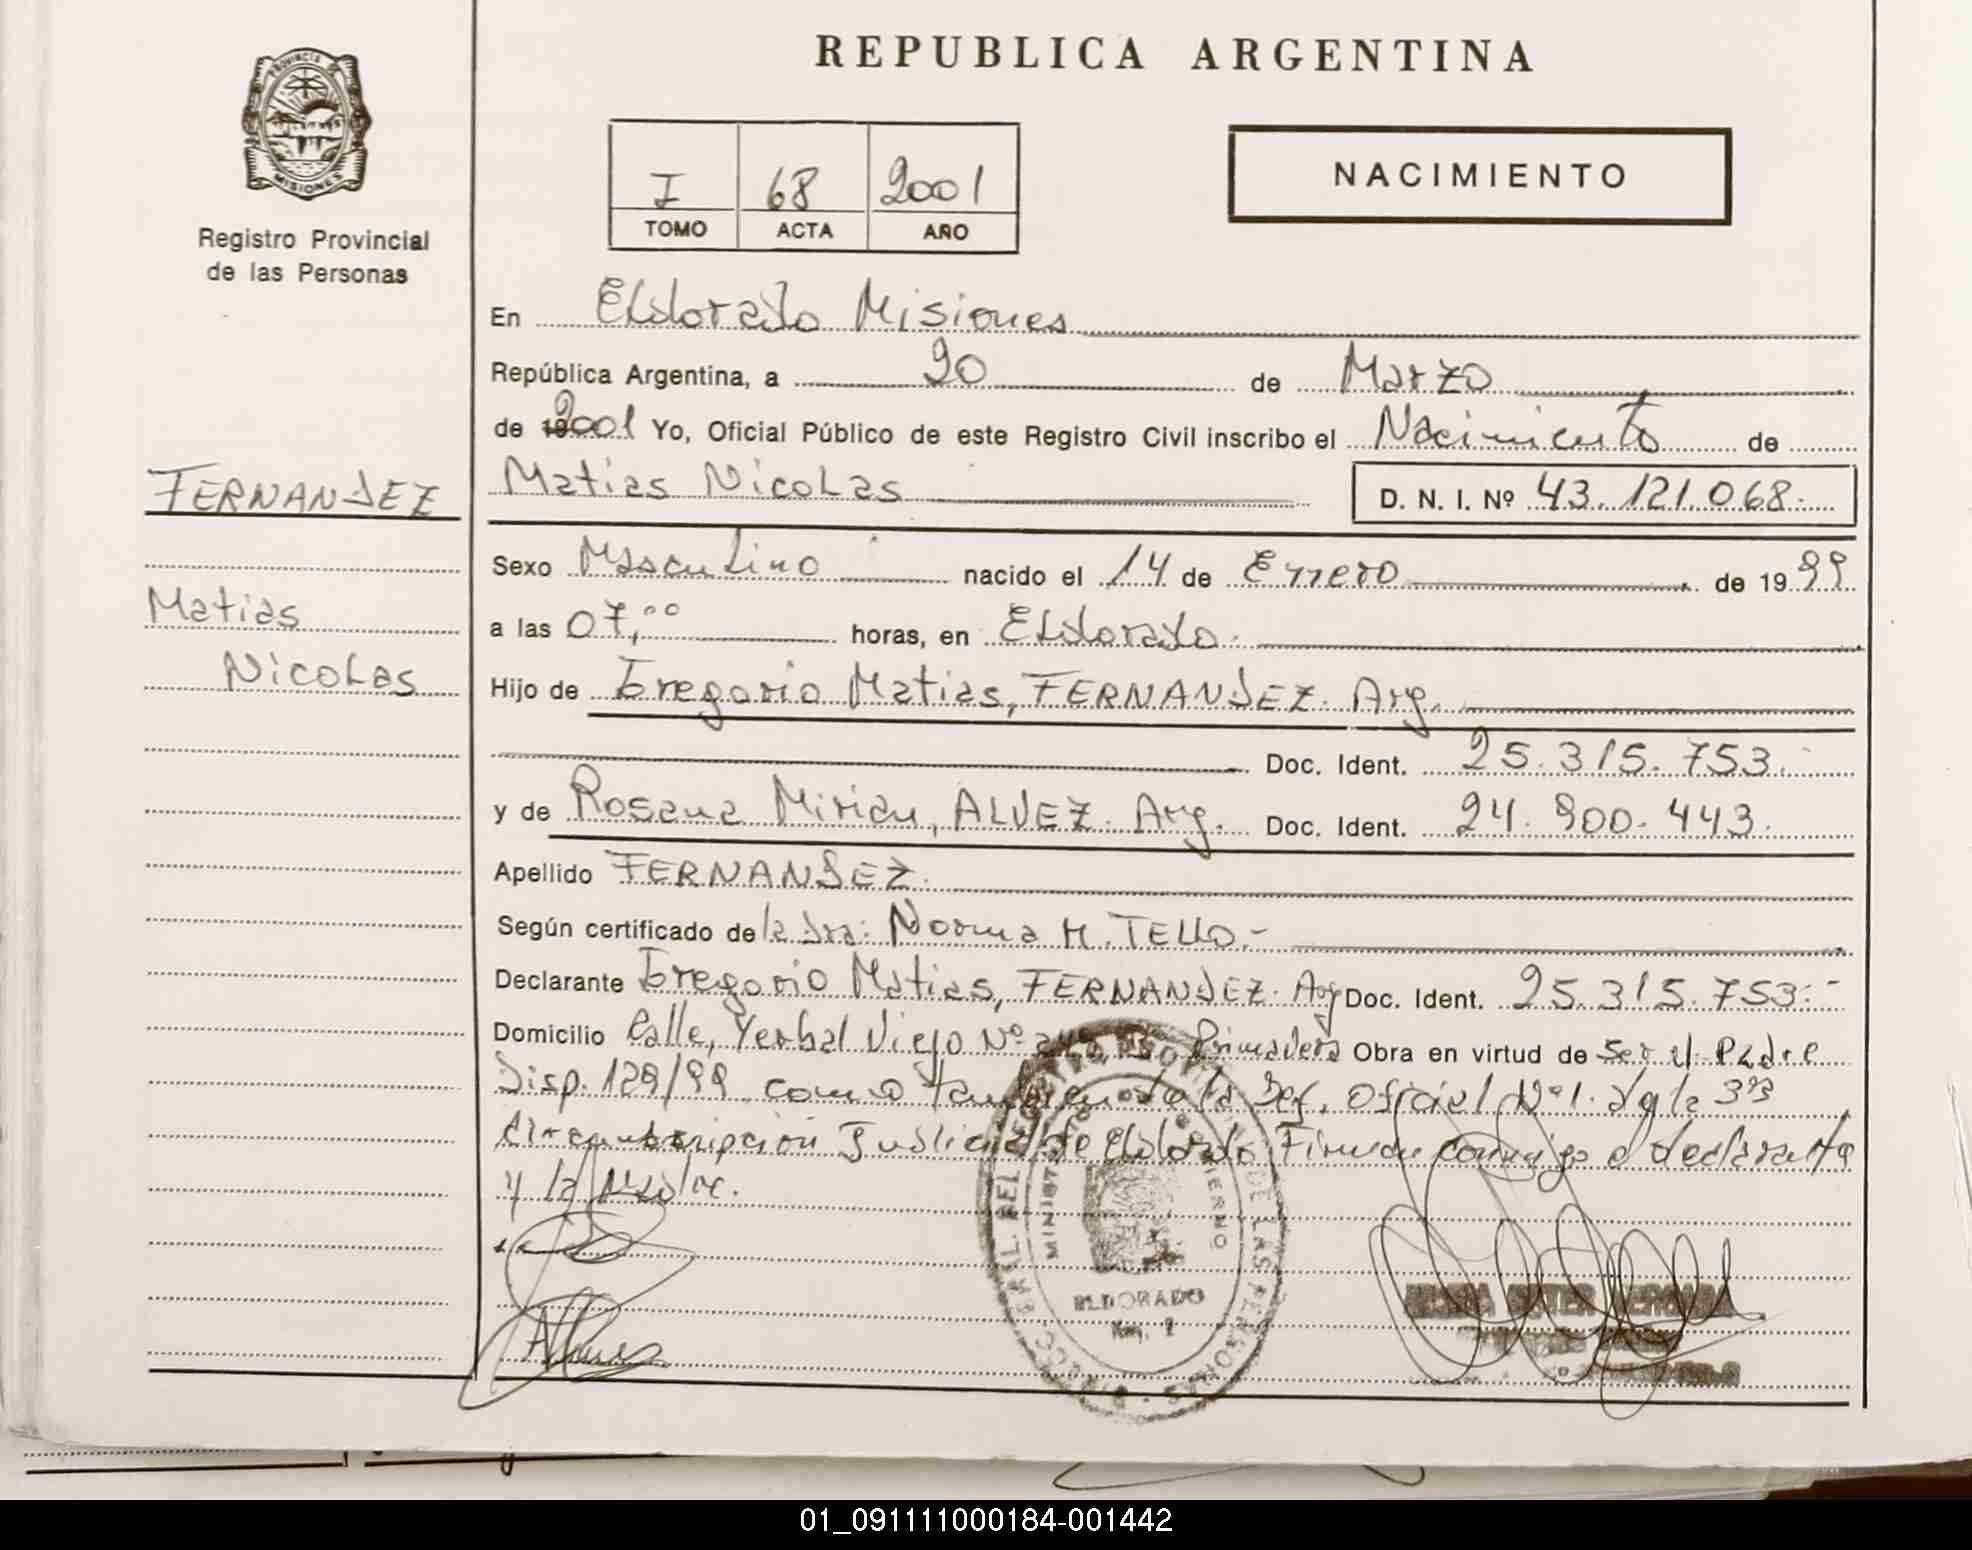 REPUBLICA ARGENTINA
PROVINCIA DE MISIONES
Registro Provincial
de las Personas
I 68 2001
TOMO ACTA AÑO
NACIMIENTO
En Eldorado Misiones
República Argentina, a 20 de Marzo
de 2001 Yo, Oficial Público de este Registro Civil inscribo el Nacimiento de
FERNANDEZ
Matias Nicolas D. N. I. Nº 43.121.068.
Sexo Masculino nacido el 14 de Enero de 1999
Matias
Nicolas
a las 07,00 horas, en Eldorado.
Hijo de Gregorio Matias, FERNANDEZ. Arg.
Doc. Ident. 25.315.753.
y de Rosana Mirian, ALVEZ. Arg. Doc. Ident. 24.900.443.
Apellido FERNANDEZ.
Según certificado de la Dra: Norma H. TELLO.-
Declarante Gregorio Matias, FERNANDEZ. Arg Doc. Ident. 25.315.753.-
Domicilio Calle, Yerbal Viejo Nº Bº Primavera Obra en virtud de Ser el Padre
Disp. 129/99 como tambien de la Def. Oficial Nº1. de la 3ra
Circunscripcion Judicial de Eldorado Firman conmigo e declarante
y la Madre.
MINISTERIO DE GOBIERNO
DE LAS PERSONAS
ELDORADO
01_091111000184-001442